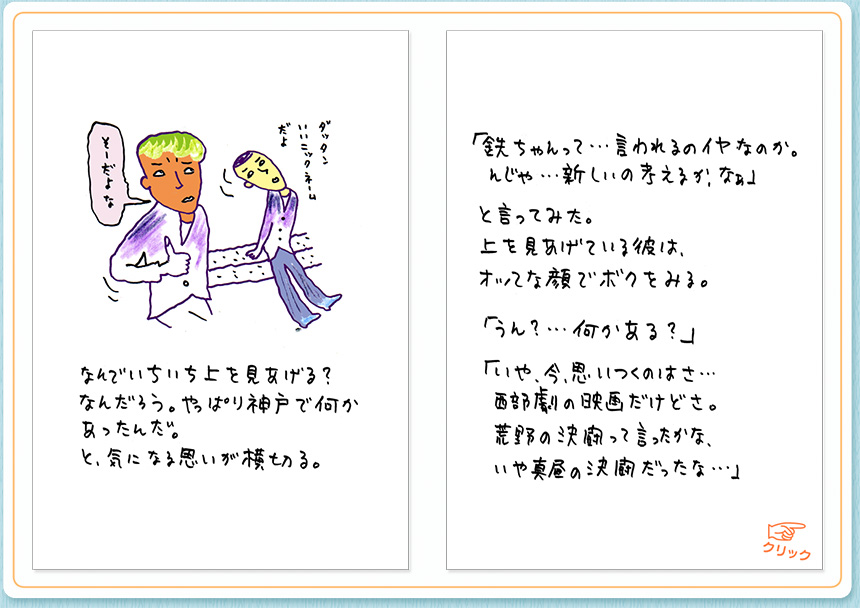 そーだよな
ダッタン
いいニックネーム
だよ
なんでいちいち上を見あげる?
なんだろう。やっぱり神戸で何か
あったんだ。
と、気になる思いが横切る。
「鉄ちゃんって…言われるのイヤなのか。
んじゃ…新しいの考えるか,なぁ」
と言ってみた。
上を見あげている彼は、
オッってな顔でボクをみる。
「うん?…何かある?」
「いや、今、思いつくのはさ…
西部劇の映画だけどさ。
荒野の決闘って言ったかな、
いや真昼の決闘だったな…」
クリック